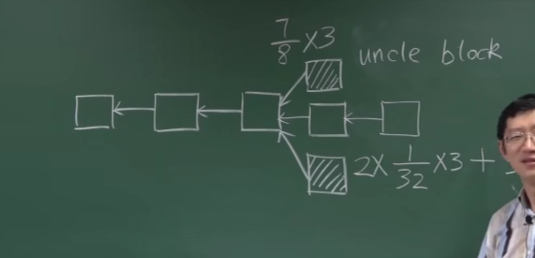 7/8 ×3
uncle block
2× 1/32 ×3 +